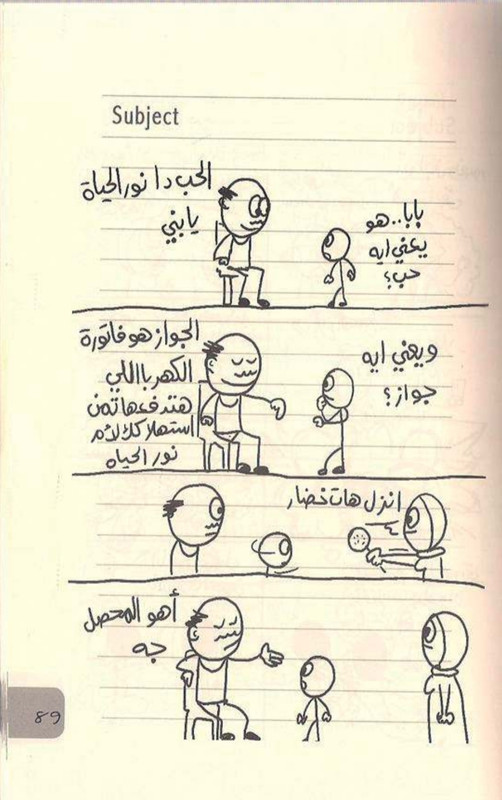 Subject
بابا..هو
يعني ايه
حب؟
الحب دا نور الحياة
يا بني
ويعني ايه
جواز؟
الجواز هو فاتورة
الكهربا اللي
هتدفعها تمن
استهلاكك لأم
نور الحياه
انزل هات خضار
أهو المحصل
جه
89